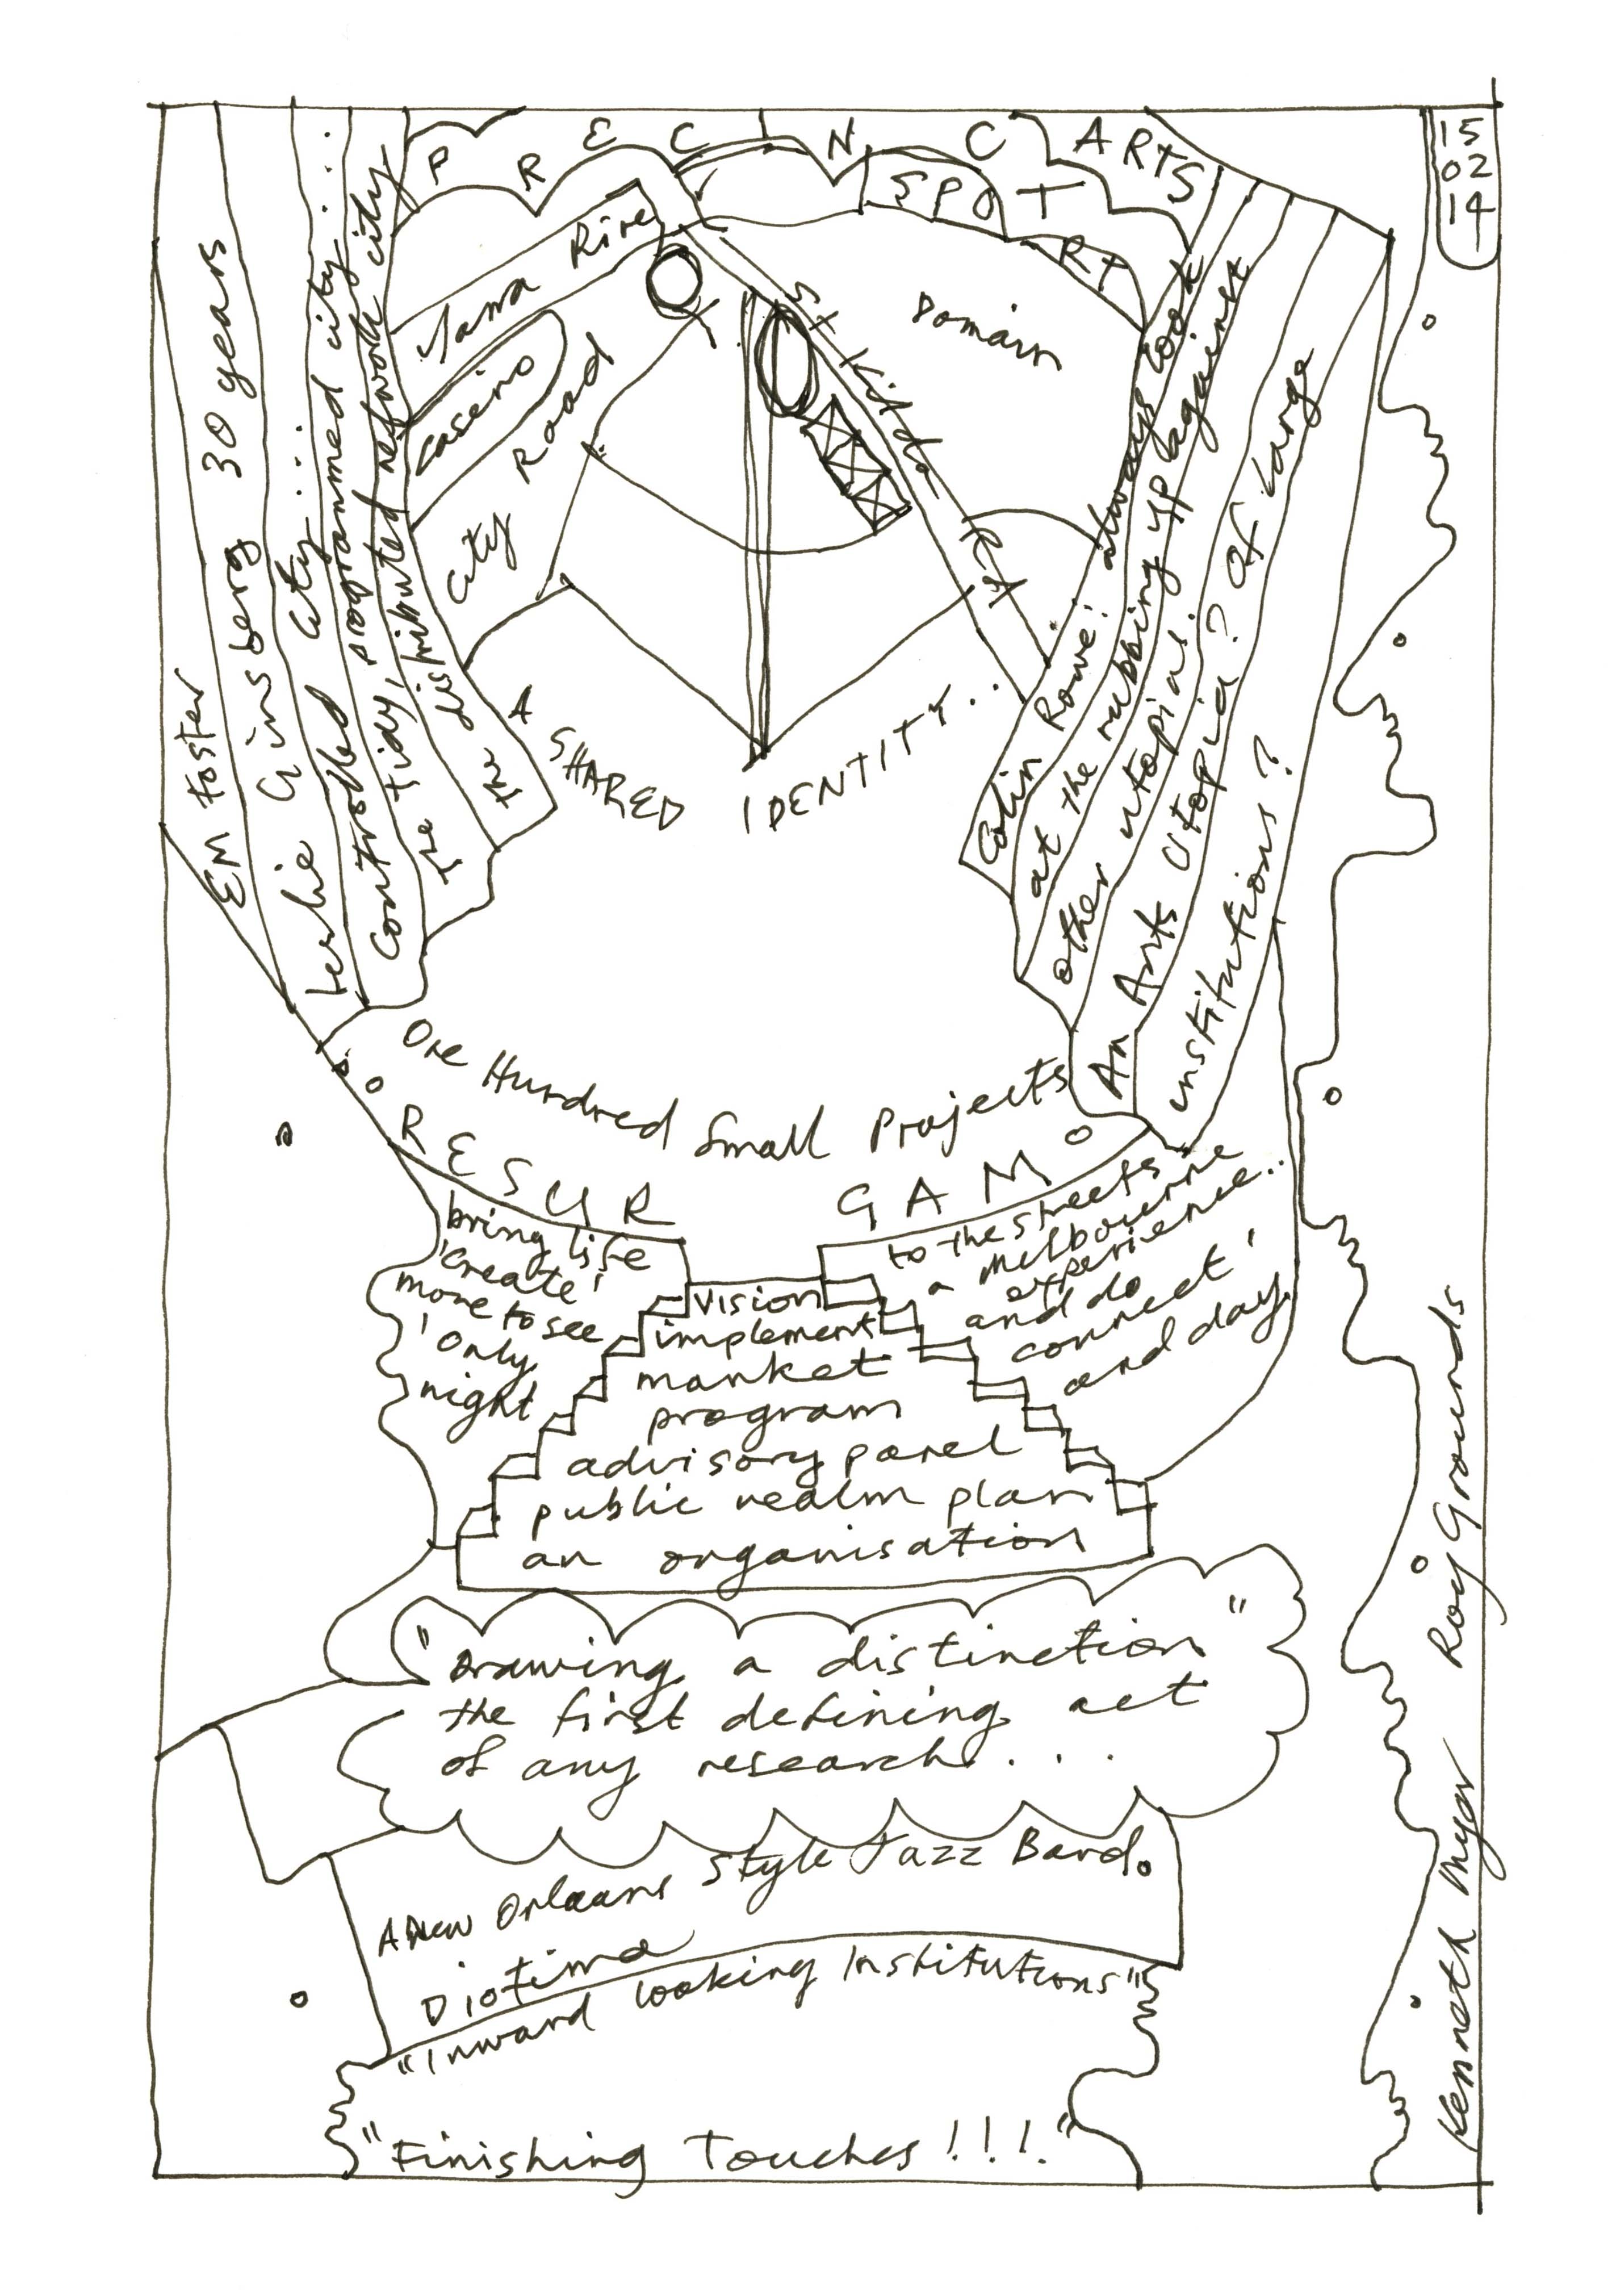 PREC NC ARTS
SPORT
15
02
14
EM Foster 30 years
Leslie Ginsberg
Controlled city....
The tidy, programmed city....
The distributed network city
Yarra River
Casino
City Road
St Kilda Rd
Domain
A SHARED IDENTITY..
Colin Rowe: always look
at the rubbing up against
other utopias.
An Arts Utopia? Of large
institutions?
One Hundred Small Projects
RESUR GAM
bring life to the streets
'create' a Melbourne experience..
more to see and do
'only connect'
night and day
Vision
implement
market
program
advisory panel
public realm plan
an organisation
"Drawing a distinction"
the first defining act
of any research...
A New Orleans Style Jazz Band.
Diotima
"Inward looking Institutions"
"Finishing Touches!!!."
Kenneth Myer Roy Grounds